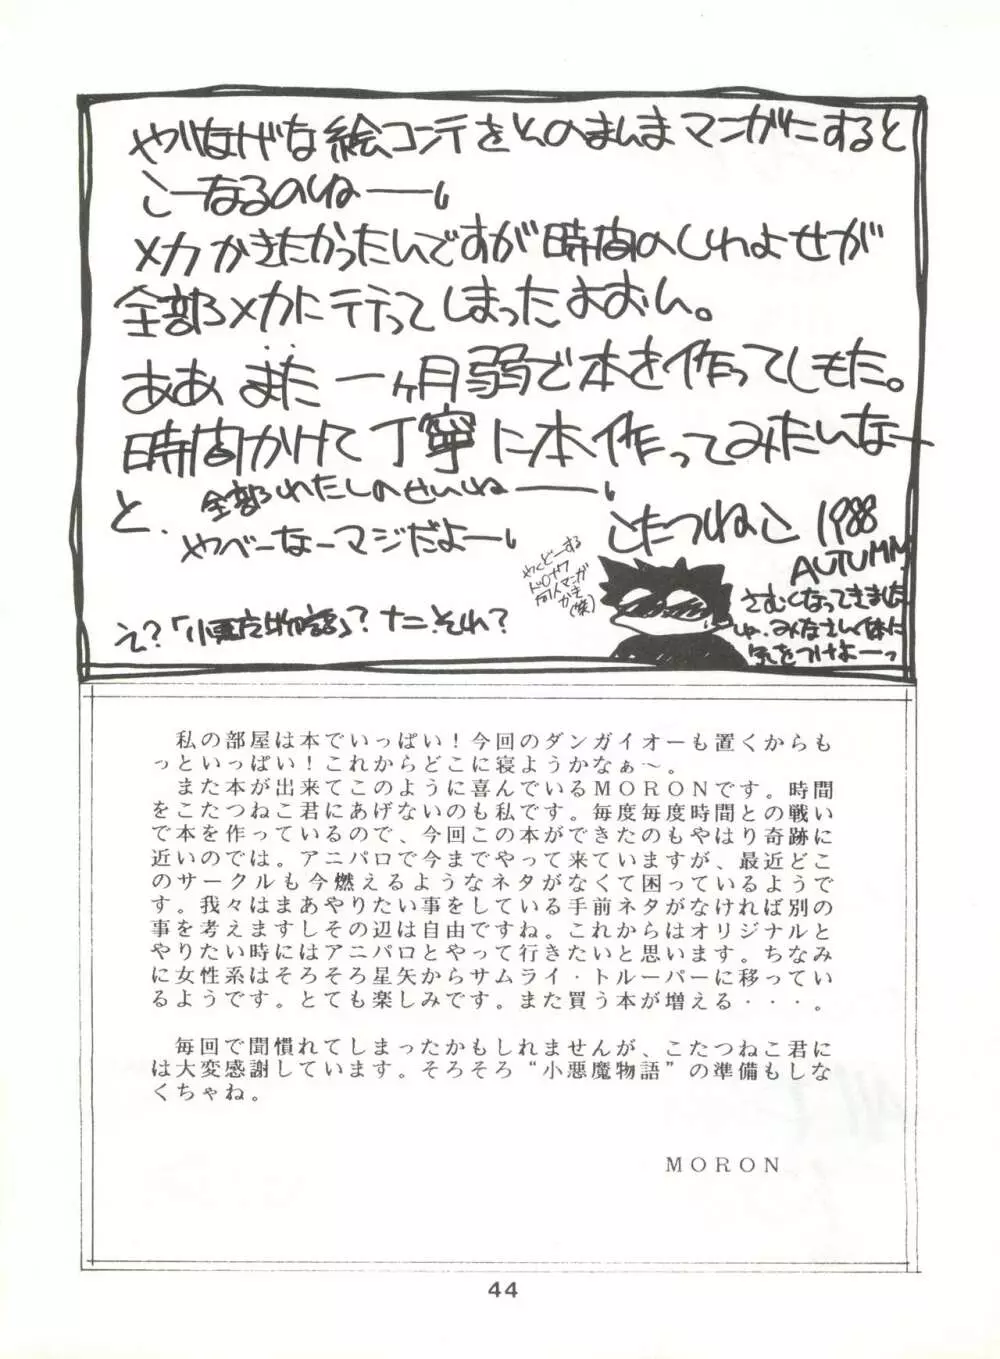 やりなげな絵コンテをそのまんまマンガにすると
こーなるのねー
メカかきたかったんですが時間のしわよせが
全部メカに行ってしまったよおん。
ああまた一ヶ月弱で本を作ってしもた。
時間かけて丁寧に本作ってみたいなー
と、全部わたしのせいねー
やべーなーマジだよー
え?「小悪魔物語」?ナニそれ?
こたつねこ 1988
AUTUMN
さむくなってきました
みなさん体に
気をつけよーっ
同人マンガ
かき(笑)
私の部屋は本でいっぱい!今回のダンガイオーも置くからも
っといっぱい!これからどこに寝ようかなぁ~。
また本が出来てこのように喜んでいるMORONです。時間
をこたつねこ君にあげないのも私です。毎度毎度時間との戦い
で本を作っているので、今回この本ができたのもやはり奇跡に
近いのでは。アニパロで今までやって来ていますが、最近どこ
のサークルも今燃えるようなネタがなくて困っているようで
す。我々はまあやりたい事をしている手前ネタがなければ別の
事を考えますしその辺は自由ですね。これからはオリジナルと
やりたい時にはアニパロとやって行きたいと思います。ちなみ
に女性系はそろそろ星矢からサムライ・トルーパーに移ってい
るようです。とても楽しみです。また買う本が増える・・・。
毎回で聞慣れてしまったかもしれませんが、こたつねこ君に
は大変感謝しています。そろそろ“小悪魔物語”の準備もしな
くちゃね。
MORON
44